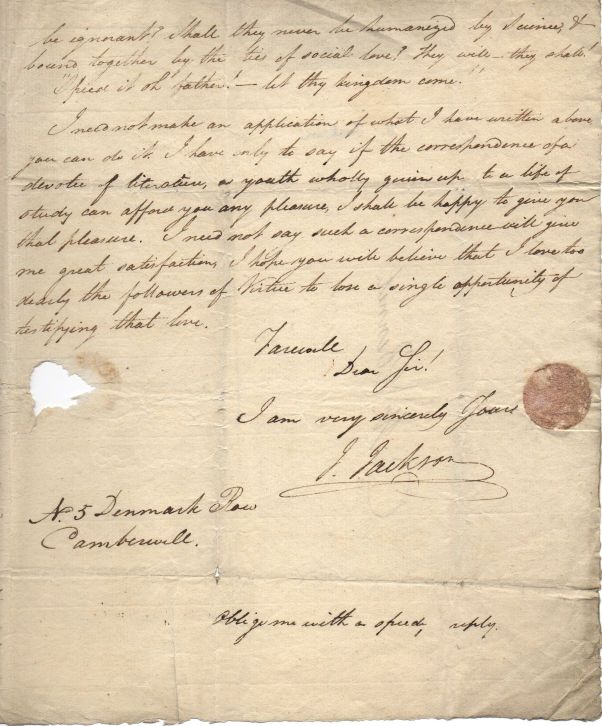 be ignorant? Shall they never be humanized by Science, &
bound together by the ties of social love? They will - they shall!
"Speed it oh father! - let thy kingdom come."
I need not make an application of what I have written above
you can do it. I have only to say if the correspondence of a
devotee of literature, a youth wholly given up to a life of
study can afford you any pleasure, I shall be happy to give you
that pleasure. I need not say such a correspondence will give
me great satisfaction, I hope you will believe that I love too
dearly the followers of Virtue to lose a single opportunity of
testifying that love.
Farewell
Dear Sir!
I am very sincerely Yours
J. Jackson
No. 5 Denmark Row
Camberwell.
Oblige me with a speedy reply.